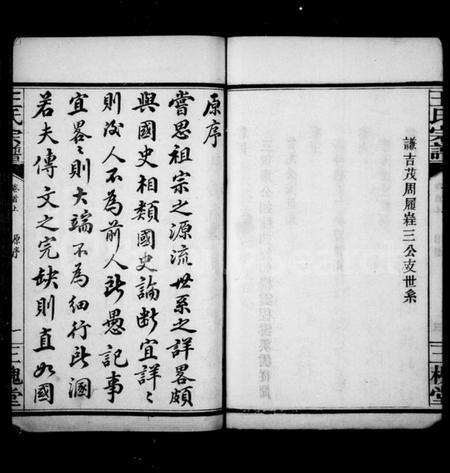 謙吉茂周履程三公支世系
王氏宗譜
三槐堂
原序
嘗思祖宗之源流世系之詳畧頗
與國史相類國史論斷宜詳〻
則後人不為前人所愚記事
宜畧〻則大端不為細行所溷
若夫傳文之完缺則直如國
王氏宗譜
卷首上
原序
一
三槐堂